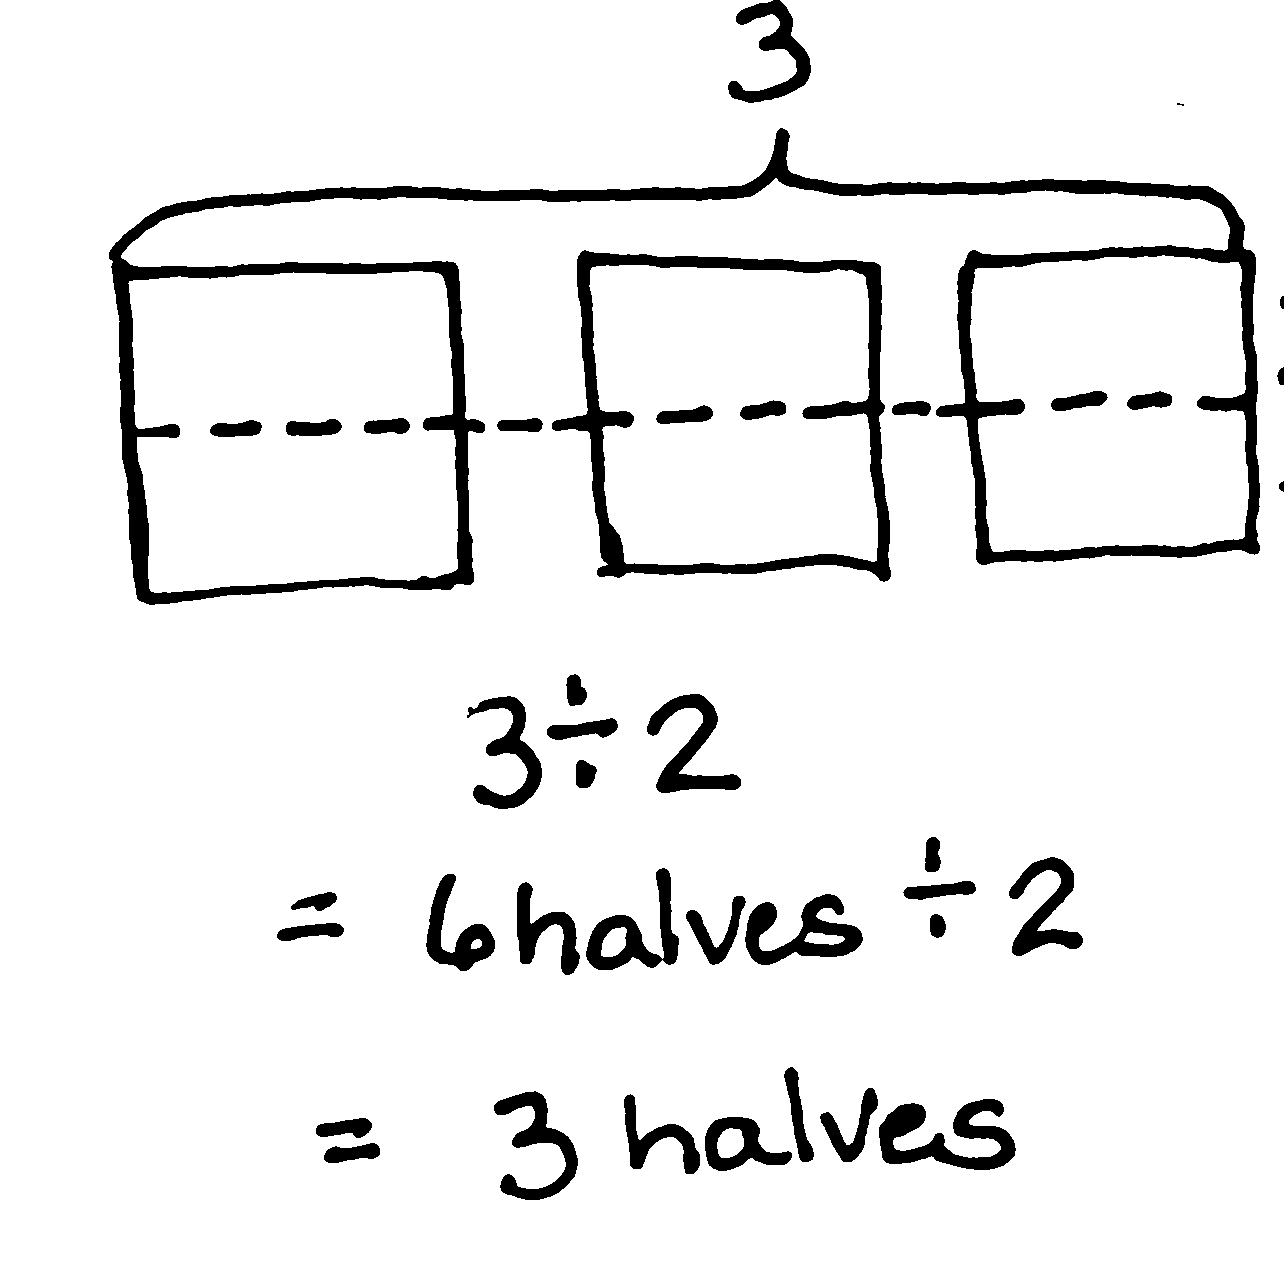 3
3 ÷ 2
= 6 halves ÷ 2
= 3 halves